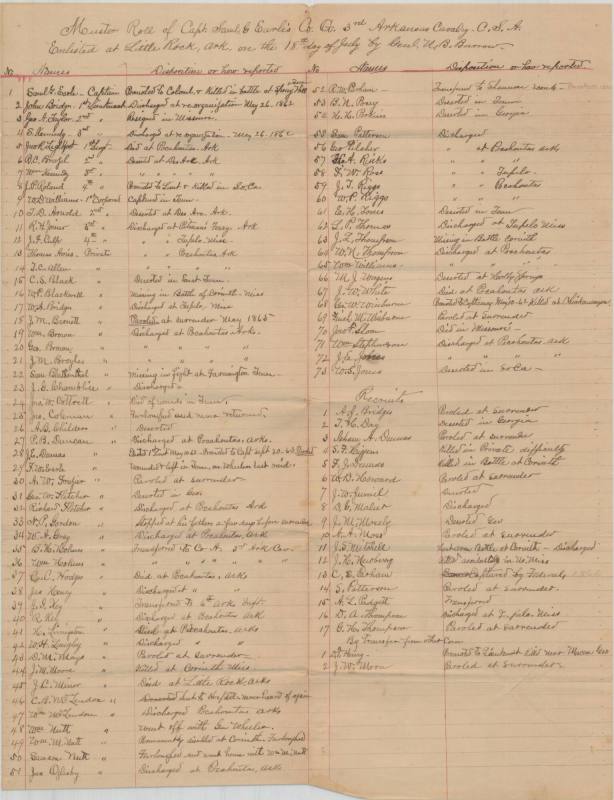 Muster Roll of Capt. Saml G Earle's Co. G. 3rd Arkansas Cavalry. C.S.A.
Enlisted at Little Rock, Ark. on the 18th day of July by Genl. N. B. Burrow
No Names Disposition or how reported
1 Saml G. Earle - Captain Promoted to Colonel & Killed in battle at Spring Hill
2 John Bridge 1st Lieutenant Discharged at reorganization May 26. 1862
3 Jas A. Taylor 2nd " Resigned in Missouri
4 S. Kennedy 3rd " Discharged at reorganization - May 26. 1862
5 Lightfoot 1st Sergt Died at Pocahontas Ark
6 2nd " Ark
7 Wm Kennedy 3rd " " " "
8 J. P. Roland 4th " Promoted to Lieut & Killed in So. Ca.
9 W. D. Williams - 1st Corporal Captured in Tenn
10 T. D. Arnold 2nd " Deserted at Des Arc. Ark.
11 R. H. Joiner 3rd " Discharged at Ferry. Ark
12 4th " " " Tupelo. Miss
13 Thomas Private " " Pocahontas Ark
14 T. C. Allen " " " "
15 C. S. Black " Deserted in East Tenn.
16 W. P. Blackwell " Missing in Battle of Corinth. Miss
17 W. A. Bridge " Discharged at Tupelo, Miss
18 J. M. " Paroled at surrender May 1865
19 Wm. Brown " Discharged at Pocahontas Arks.
20 Geo. " " " "
21 J. M. Broyles " " " "
22 Sam " Missing in fight at Farmington Tenn.
23 J. G. Chamblin " Discharged "
24 Jno W. Cottrell " Died of wounds in Tenn.
25 Jas. Coleman " Furloughed and never returned
26 A. B. Childers " Deserted
27 P. B. Duncan " Discharged at Pocahontas, Arks.
28 J. Dumas " Promoted to Capt Sept 20. 63
29 F. W. Earle " Wounded & left in Tenn. on Wheeler's last raid
30 A. W. Frazier " Paroled at surrender
31 Geo. W. Fletcher " Deserted in Geo
32 Richard Fletcher " Discharged at Pocahontas Ark
33 A. P. Gordon " Stopped at his fathers a few days before surrender
34 W. A. Gray " Discharged at Pocahontas, Ark
35 B. H. " Transferred to Co A. 3rd Ark Cav.
36 Wm " " " " " "
37 Hodge " Died at Pocahontas, Arks
38 Jas Henry " Discharged at " "
39 J. F. Key " Transferred to 6th Arks Inft.
40 R. Key " Discharged at Pocahontas Ark
41 H. Livingston " Died at Pocahontas, Arks
42 W. H. Langley " Discharged at " "
43 D. M. Mays " Paroled at surrender
44 J. M. Moore " Killed at Corinth Miss.
45 J. L. Minor " Died at Little Rock Arks
46 C. A. McLendon " Removed Sick to Hospital - never heard of again
47 Wm McLendon " Discharged Pocahontas Arks
48 Wm Nutt " Went off with Gen Wheeler.
49 Wm. M. Nutt " Permanently disabled at Corinth Furloughed
50 Nutt " Furloughed and went home with Wm M. Nutt
51 Jno Oglesby " Discharged at Pocahontas, Ark.
No Names Disposition or how reported
52 R. W. Transferred to Shannon scouts -
53 B. N. Perry Deserted in Tenn
54 H. H. Perkins Deserted in Georgia
55 Sam Patterson Discharged
56 Geo Pilcher " at Pocahontas Ark
57 A. Ricks " " "
58 F. W. Rose " Tupelo.
59 J. T. Riggs " Pocahontas
60 W. P. Riggs " "
61 E. H. Jones Deserted in Tenn
62 L. P. Thomas Discharged at Tupelo Miss
63 J. L. Thompson Missing in Battle Corinth
64 W. N. Thompson Discharged at Pocahontas
65 Wm Williams " " "
66 M. J. Wagens Deserted at Holly Springs
67 J. W. White Died at Pocahontas Ark
68 Geo. W. Winburn Killed at Chickamauga
69 M. Winburn Paroled at Surrender
70 Jno P. Sloan Died in Missouri
71 Wm Stephenson Discharged at Pocahontas Ark
72 J. C. Jones " " "
73 W. S. Jones Deserted in So Ca -
Recruits
1 A. J. Bridges Paroled at surrender
2 T. H. Day Deserted in Georgia
3 A. Dumas Paroled at surrender
4 S. F. Killed in Private difficulty
5 F. J. Dumas Killed in Battle at Corinth
6 W. B. Howard Paroled at surrender
7 J. W. Deserted
8 D. C. Discharged
9 J. M. Mosely Deserted Geo
10 A. A. Moss Paroled at surrender
11 J. S. Mitchell Lost arm Battle of Corinth - Discharged
12 J. H. Killed in Miss
13 C. E. Captured by Federals
14 S. Patterson Paroled at surrender.
15 A. L. Padgett Transferred
16 D. A. Thompson Discharged at Tupelo Miss
17 G. H. Thompson Paroled at Surrender
By Transfer from other Com
1 Henry - Promoted to Lieutenant Killed near Macon Geo
2 J. W. Moon Paroled at Surrender